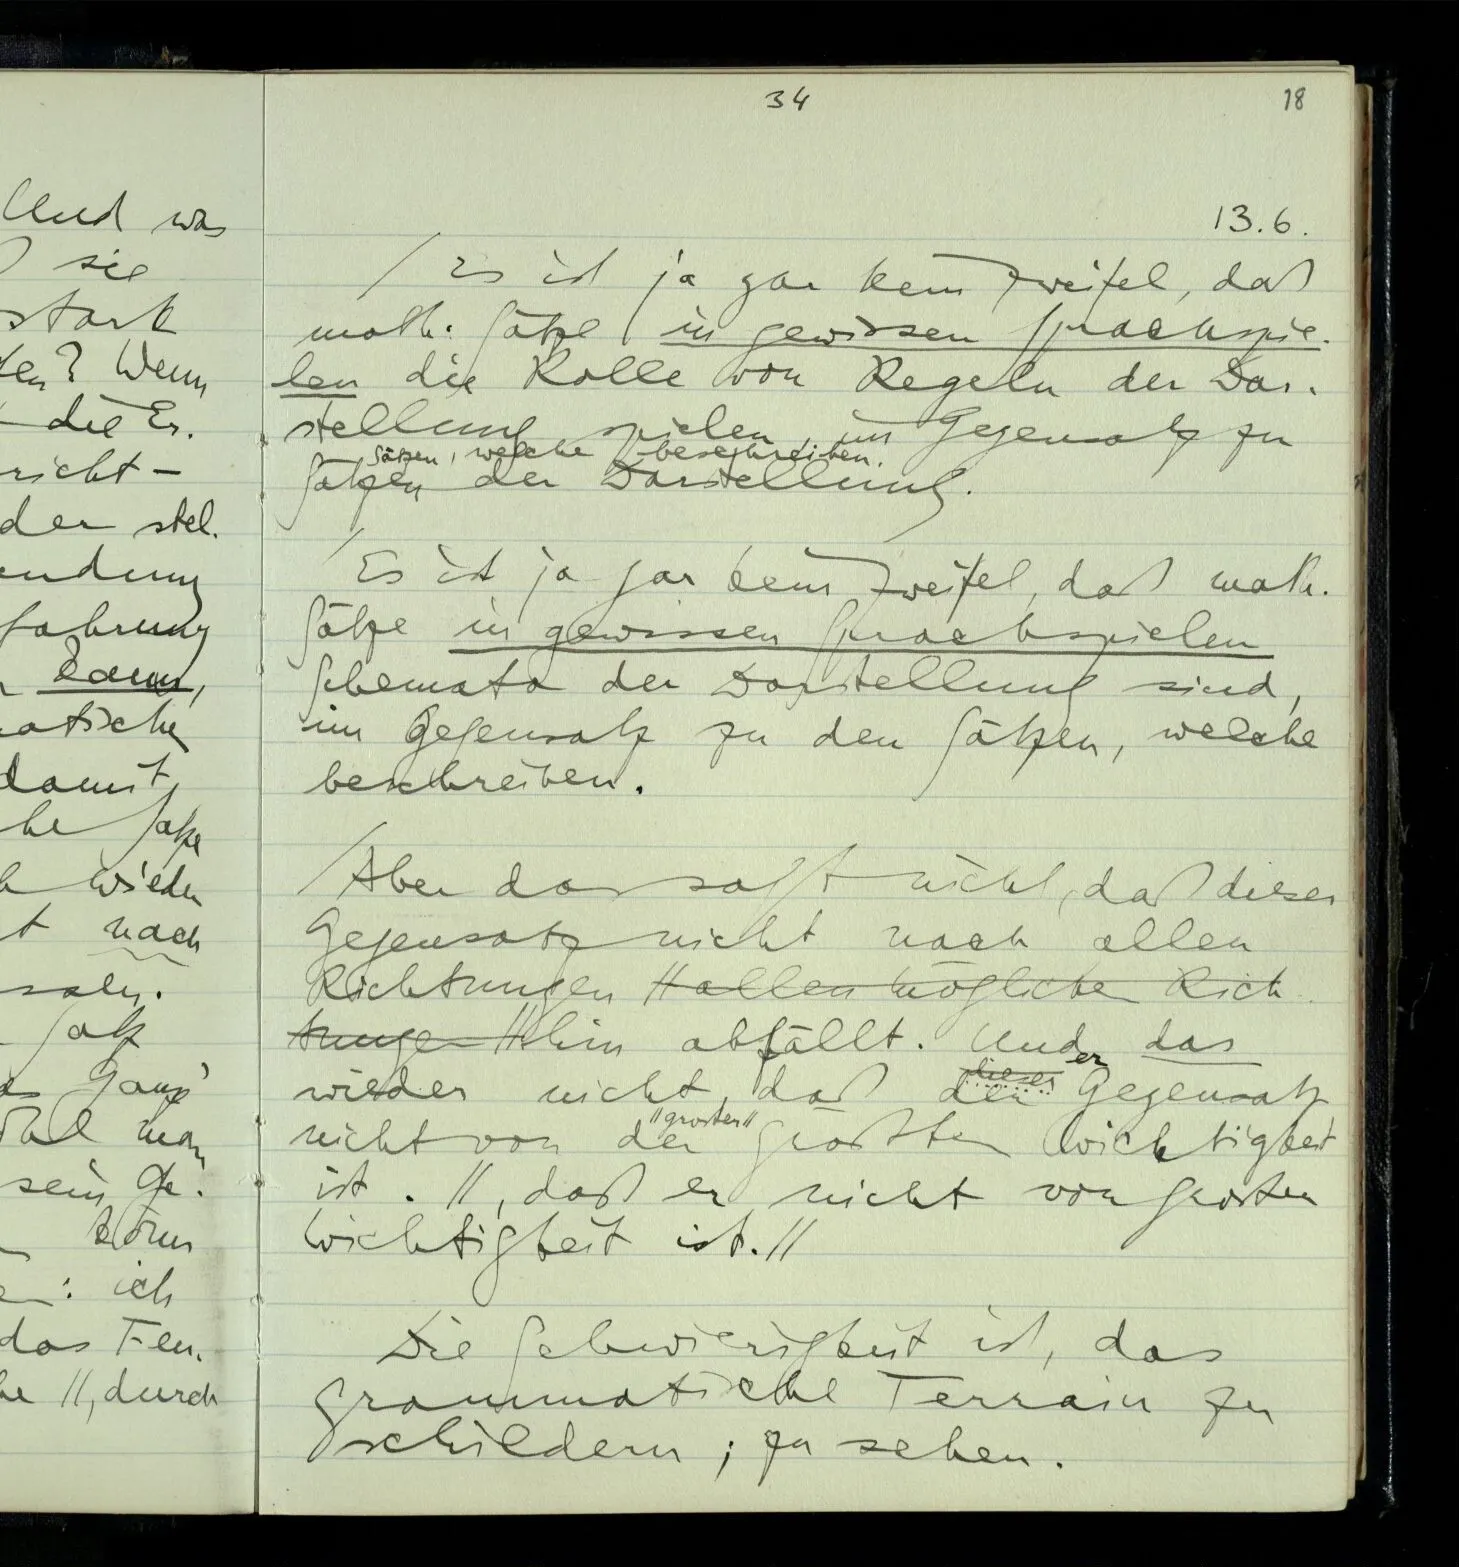 Und was
sie
stark
ten? Wenn
die Er-
richt –
der stel-
endung
fahrung
kann,
matische
damit
he Sätze
wieder
t nach
Satz
Ganz
man
sein Ge-
: ich
das Fen-
he //, durch
34
18
13.6.
/ Es ist ja gar kein Zweifel, daß
math. Sätze in gewissen Sprachspie-
len die Rolle von Regeln der Dar-
stellung spielen, im Gegensatz zu
Sätzen, welche beschreiben.
Sätzen der Darstellung.
/ Es ist ja gar kein Zweifel, daß math.
Sätze in gewissen Sprachspielen
Schemata der Darstellung sind,
im Gegensatz zu den Sätzen, welche
beschreiben.
/ Aber das sagt nicht, daß dieser
Gegensatz nicht nach allen
Richtungen // allen möglichen Rich-
tungen // hin abfällt. Und das
dieser er
wieder nicht, daß der Gegensatz
//großen//
nicht von der größten Wichtigkeit
ist. //, daß er nicht von großer
Wichtigkeit ist. //
Die Schwierigkeit ist, das
grammatische Terrain zu
schildern; zu sehen.